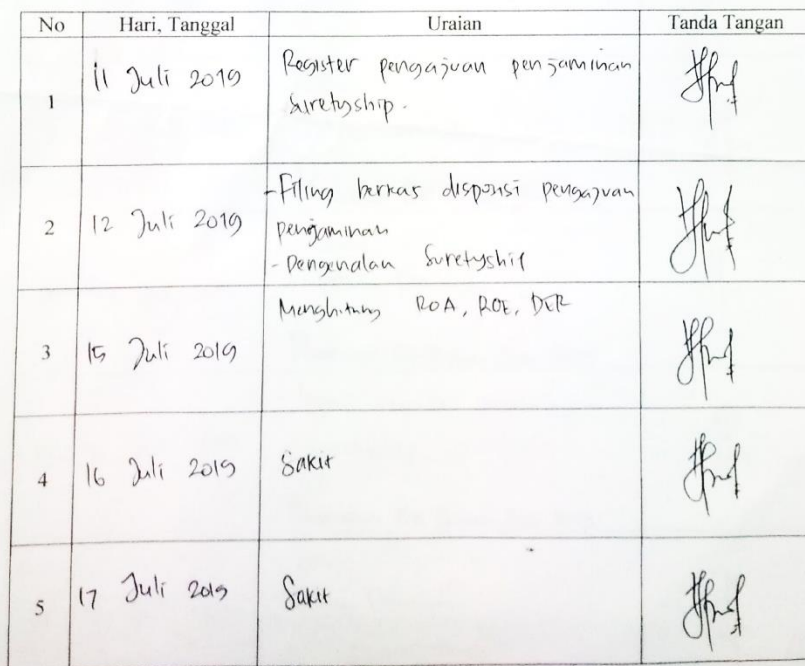 No Hari, Tanggal Uraian Tanda Tangan
1 11 Juli 2019 Register pengajuan penjaminan
suretyship.
2 12 Juli 2019 - Filing berkas disposisi pengajuan
penjaminan
- Pengenalan Suretyship
3 15 Juli 2019 Menghitung ROA, ROE, DER
4 16 Juli 2019 Sakit
5 17 Juli 2019 Sakit